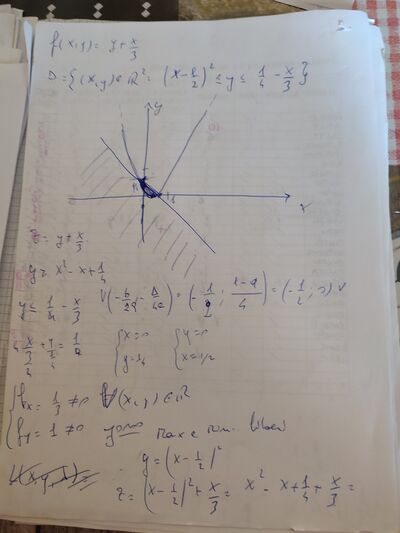 f(x,y) = y + x/3
D = {(x,y) ∈ R²: (x - 1/2)² ≤ y ≤ 1/4 - x/3}
y
x
z = y + x/3
y = x² - x + 1/4
y = 1/4 - x/3
V(-b/2a, -Δ/4a) = (-1/2; 1-1/4) = (-1/2, 0) V
{x=0 {y=0
{y=1/4 {x=1/2
{fx = 1/3 ≠ 0 ∀(x,y) ∈ R²
{fy = 1 ≠ 0 max e min liberi
y = (x - 1/2)²
z = (x - 1/2)² + x/3 = x² - x + 1/4 + x/3 =